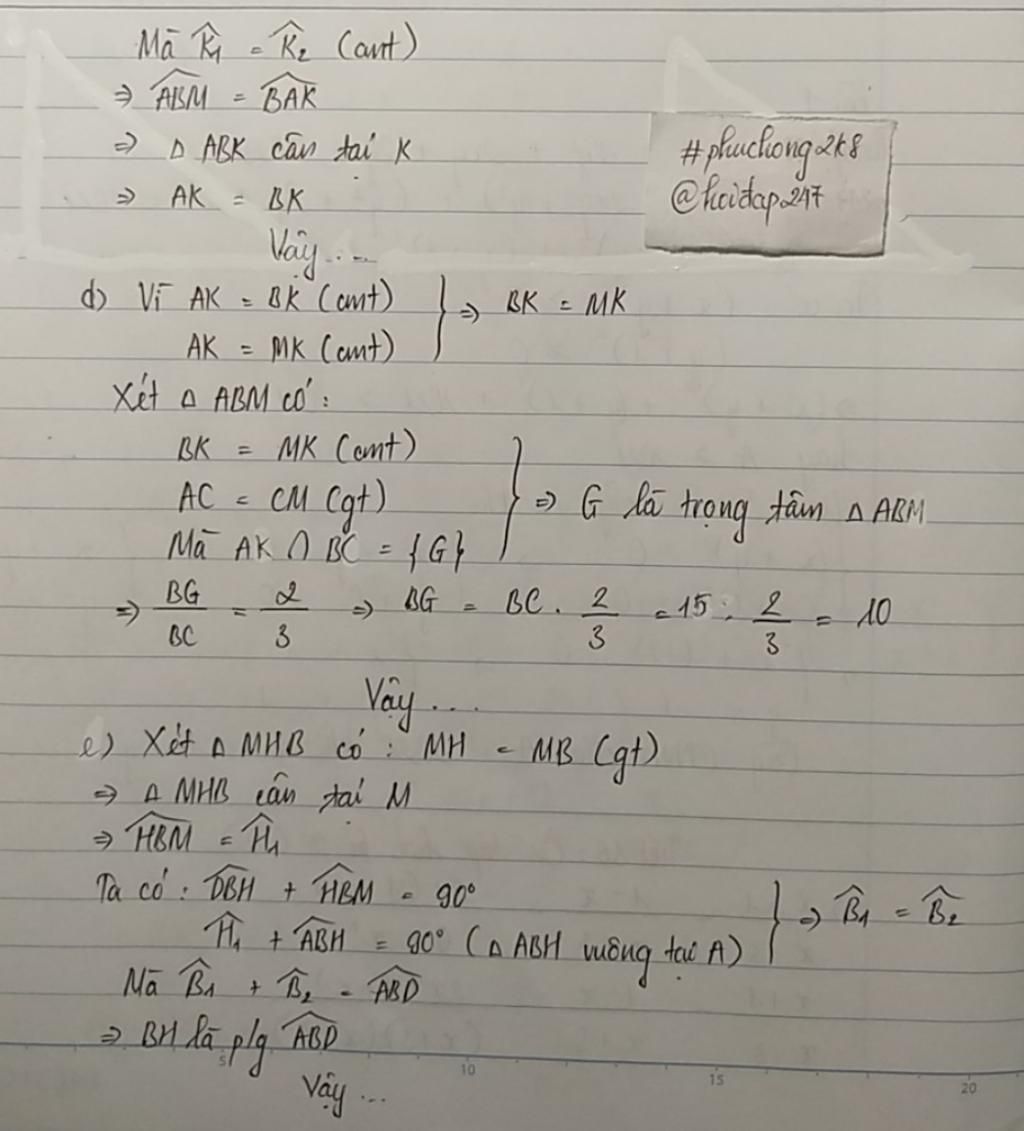 Mà K̂₁ = K̂₂ (cmt)
⇒ \widehat{ABM} = \widehat{BAK}
⇒ Δ ABK cân tại K
⇒ AK = BK
Vậy...
#phuchong2k8
@hoidap247
d) Vì AK = BK (cmt)
AK = MK (cmt)
} ⇒ BK = MK
Xét Δ ABM có:
BK = MK (cmt)
AC = CM (gt)
Mà AK ∩ BC = {G}
} ⇒ G là trọng tâm Δ ABM
⇒ BG/BC = 2/3 ⇒ BG = BC . 2/3 = 15 . 2/3 = 10
Vậy...
e) Xét Δ MHB có : MH = MB (gt)
⇒ Δ MHB cân tại M
⇒ \widehat{HBM} = Ĥ₁
Ta có : \widehat{DBH} + \widehat{HBM} = 90°
Ĥ₁ + \widehat{ABH} = 90° (Δ ABH vuông tại A)
} ⇒ B̂₁ = B̂₂
Mà B̂₁ + B̂₂ = \widehat{ABD}
⇒ BH là p/g \widehat{ABD}
Vậy...
5 10 15 20